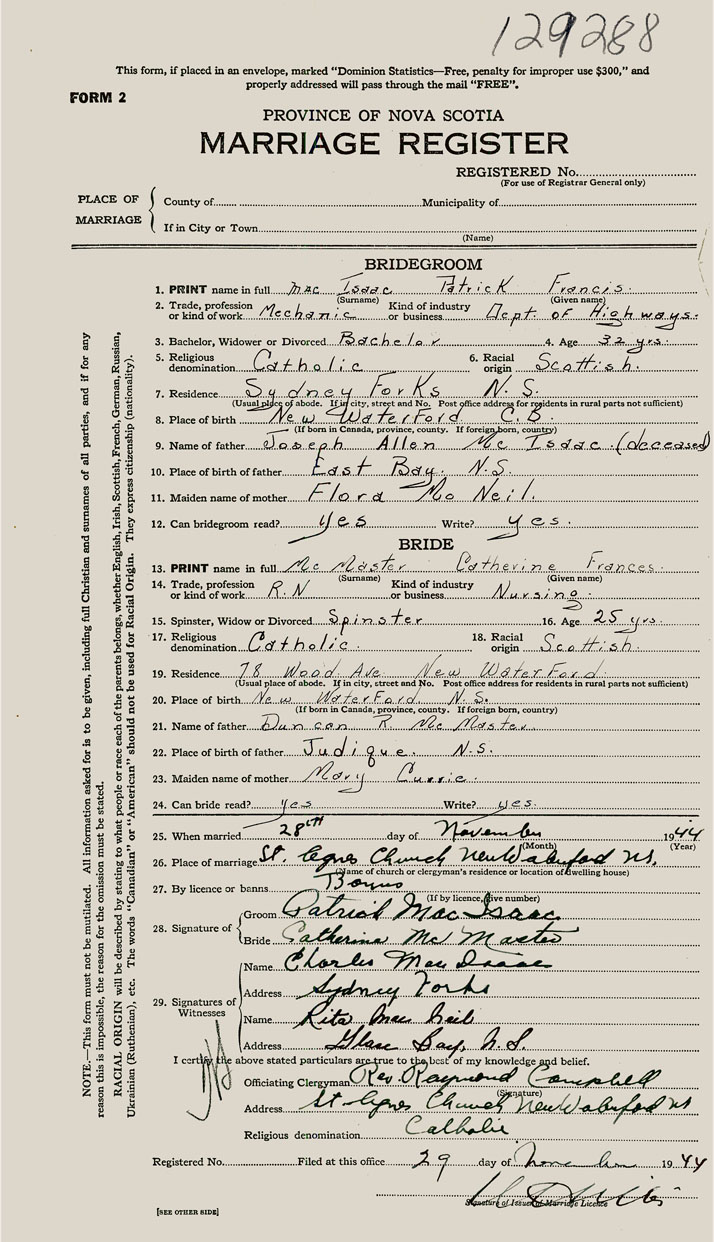 129288
This form, if placed in an envelope, marked "Dominion Statistics—Free, penalty for improper use $300," and
properly addressed will pass through the mail "FREE".
FORM 2
PROVINCE OF NOVA SCOTIA
MARRIAGE REGISTER
REGISTERED No.
(For use of Registrar General only)
PLACE OF MARRIAGE
County of Municipality of
If in City or Town
(Name)
BRIDEGROOM
1. PRINT name in full Mac Isaac Patrick Francis.
(Surname) (Given name)
2. Trade, profession or kind of work Mechanic Kind of industry or business Dept. of Highways.
3. Bachelor, Widower or Divorced Bachelor 4. Age 32 yrs.
5. Religious denomination Catholic 6. Racial origin Scottish.
7. Residence Sydney Forks N.S.
(Usual place of abode. If in city, street and No. Post office address for residents in rural parts not sufficient)
8. Place of birth New Waterford C.B.
(If born in Canada, province, county. If foreign born, country)
9. Name of father Joseph Allen Mc Isaac. (deceased)
10. Place of birth of father East Bay. N.S.
11. Maiden name of mother Flora Mc Neil.
12. Can bridegroom read? yes Write? yes.
BRIDE
13. PRINT name in full Mc Master Catherine Frances.
(Surname) (Given name)
14. Trade, profession or kind of work R.N Kind of industry or business Nursing.
15. Spinster, Widow or Divorced Spinster 16. Age 25 yrs.
17. Religious denomination Catholic. 18. Racial origin Scottish.
19. Residence 78 Wood Ave. New Waterford.
(Usual place of abode. If in city, street and No. Post office address for residents in rural parts not sufficient)
20. Place of birth New Waterford N.S.
(If born in Canada, province, county. If foreign born, country)
21. Name of father Duncan R. Mc Master
22. Place of birth of father Judique. N.S.
23. Maiden name of mother Mary Currie.
24. Can bride read? yes Write? yes.
25. When married 28th day of November 1944
(Month) (Year)
26. Place of marriage St. Agnes Church New Waterford N.S.
(Name of church or clergyman's residence or location of dwelling house)
27. By licence or banns Banns
(If by licence, give number)
28. Signature of
Groom Patrick MacIsaac
Bride Catherine McMaster
29. Signatures of Witnesses
Name Charles MacIsaac
Address Sydney Forks
Name Rita MacNeil
Address Glace Bay, N.S.
I certify the above stated particulars are true to the best of my knowledge and belief.
Officiating Clergyman Rev. Raymond Campbell
(Signature)
Address St Agnes Church New Waterford NS
Religious denomination Catholic
Registered No. Filed at this office 29 day of November 1944
Signature of Issuer of Marriage Licence
[SEE OTHER SIDE]
NOTE.—This form must not be mutilated. All information asked for is to be given, including full Christian and surnames of all parties, and if for any
reason this is impossible, the reason for the omission must be stated.
RACIAL ORIGIN will be described by stating to what people or race each of the parents belongs, whether English, Irish, Scottish, French, German, Russian,
Ukrainian (Ruthenian), etc. The words "Canadian" or "American" should not be used for Racial Origin. They express citizenship (nationality).